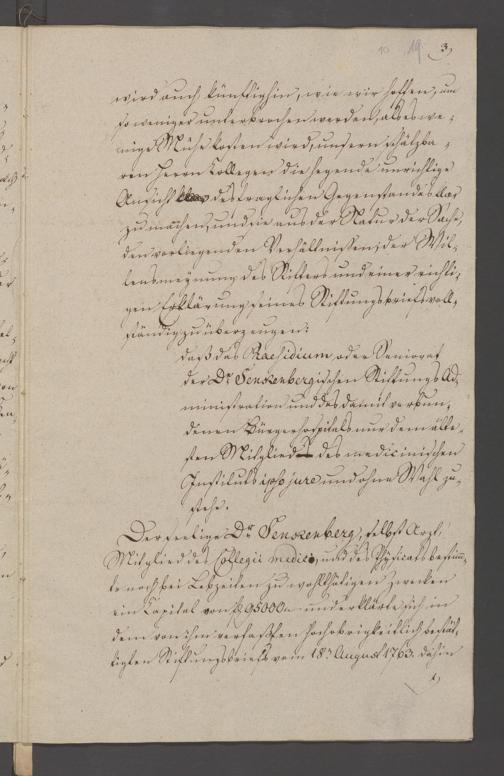 10 19 3,
wird auch künftighin, wie wir hoffen, um
so weniger unterbrochen werden, als es we-
nige Mühe kosten wird, unsern schätzba-
ren Herrn Collegen die hegende unrichtige
Ansicht des fraglichen Gegenstandes klar
zu machen, und sie aus der Natur der Sache
den vorliegenden Verhältnissen, der Wil-
lensmeynung des Stifters und einer richti-
gen Erklärung seines Stiftungsbriefs voll-
ständig zu überzeugen:
daß das Praesidium, oder Seniorat
der Dr Senkenbergischen Stiftungs Ad-
ministration und des damit verbun-
denen Bürgerhospitals nur dem älte-
sten Mitglied des medicinischen
Instituts ipso jure und ohne Wahl zu-
stehe.
Der seelige Dr Senkenberg, selbst Arzt,
Mitglied des Collegii medici, und des Physicats bestimm-
te noch bei Lebzeiten zu wohlthätigen Zwecken
ein Capital von 95000 und erklärte sich in
dem von ihm verfaßten hochobrigkeitlich bestät-
tigten Stiftungsbriefe vom 18n August 1763. dahin